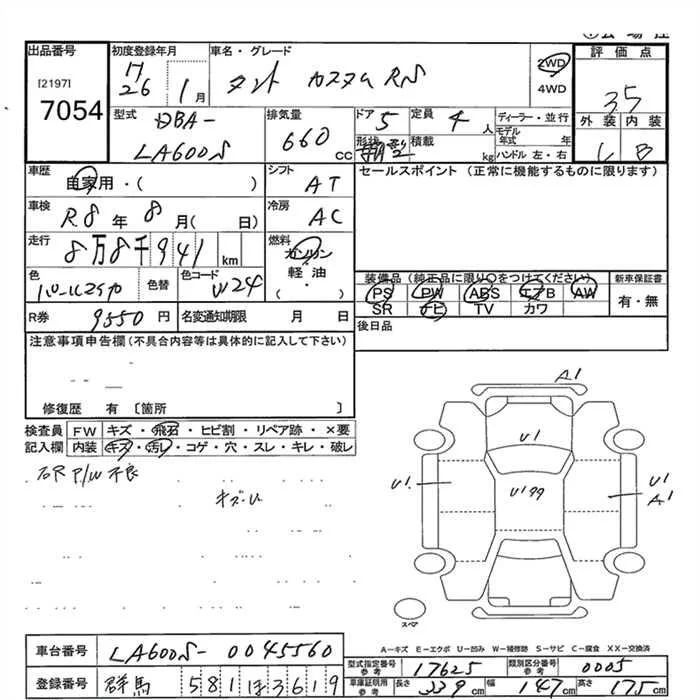 出品番号 [2197] 7054
初度登録年月 H26年1月
車名・グレード タント カスタム RS
2WD
4WD
評価点 3.5
型式 DBA-LA600S
排気量 660cc
ドア 5
形状
定員 4人
積載 kg
ディーラー・並行
モデル年式 年
ハンドル 左・右
外装 内装
C B
車歴 自家用・( )
シフト AT
セールスポイント (正常に機能するものに限ります)
車検 R8年8月( 日)
冷房 AC
走行 8万8千941km
燃料 ガソリン
軽油
・
( )
色
色替
色コード W24
装備品 (純正品に限り○をつけてください)
新車保証書
PS PW ABS エアB AW
有・無
SR ナビ TV カワ
R券 9550円
名変通知期限 月 日
後日品
注意事項申告欄 (不具合内容等は具体的に記入して下さい)
修復歴 有 〔箇所 〕
検査員 FW キズ・飛石・ヒビ割・リペア跡・×要
記入欄 内装 キズ・汚レ・コゲ・穴・スレ・キレ・破レ
石尺 P/W 不良
キズ・U
A1
U1
U1
U199
U1
A1
スペア
A-キズ E-エクボ U-凹み W-補修跡 S-サビ C-腐食 XX-交換済
車台番号 LA600S-0045560
登録番号 群馬 581 ほ 3619
型式指定番号 参考 17625
類別区分番号 参考 0005
車庫証明用 参考 長さ 339cm 幅 147cm 高さ 175cm